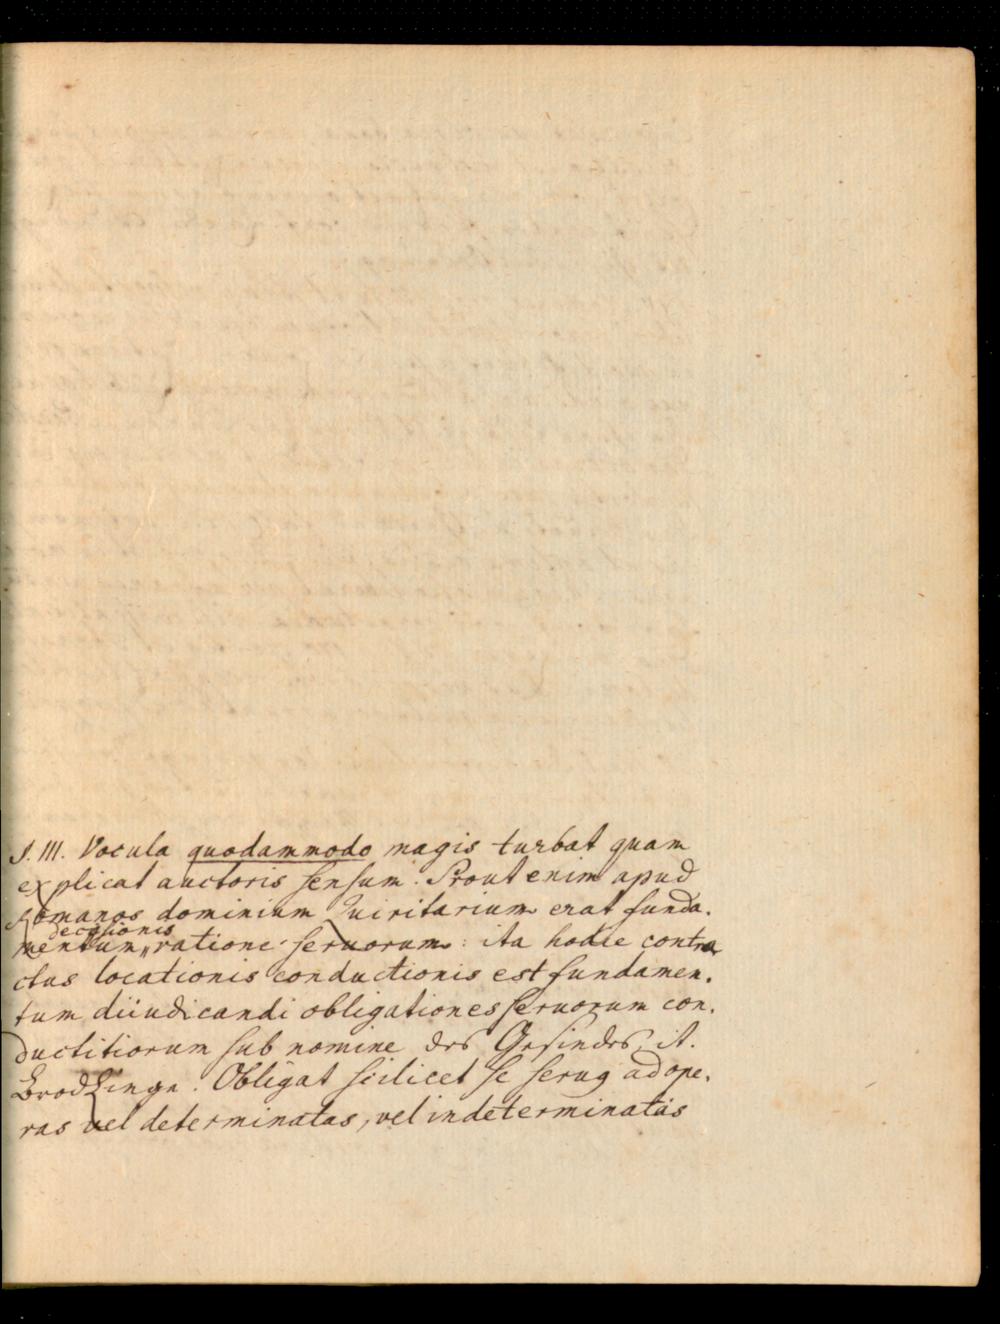 §. III. Vocula quodammodo magis turbat quam
explicat auctoris sensum. Prout enim apud
Romanos dominium Quiritarium erat funda-
decisionis
mentum ratione servorum: ita hodie contra
ctus locationis conductionis est fundamen-
tum diiudicandi obligationes servorum con-
ductitiorum sub nomine des Gesindes, it.
Brodlinge. Obligat scilicet se servq ad ope-
ras vel determinatas, vel indeterminatas